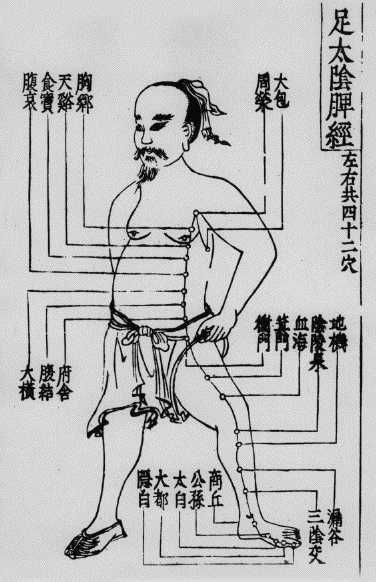 足太陰脾經
左右共四十二穴
大包
周榮
胸鄉
天谿
食竇
腹哀
地機
陰陵泉
血海
箕門
衝門
府舍
腹結
大橫
漏谷
三陰交
商丘
公孫
太白
大都
隱白